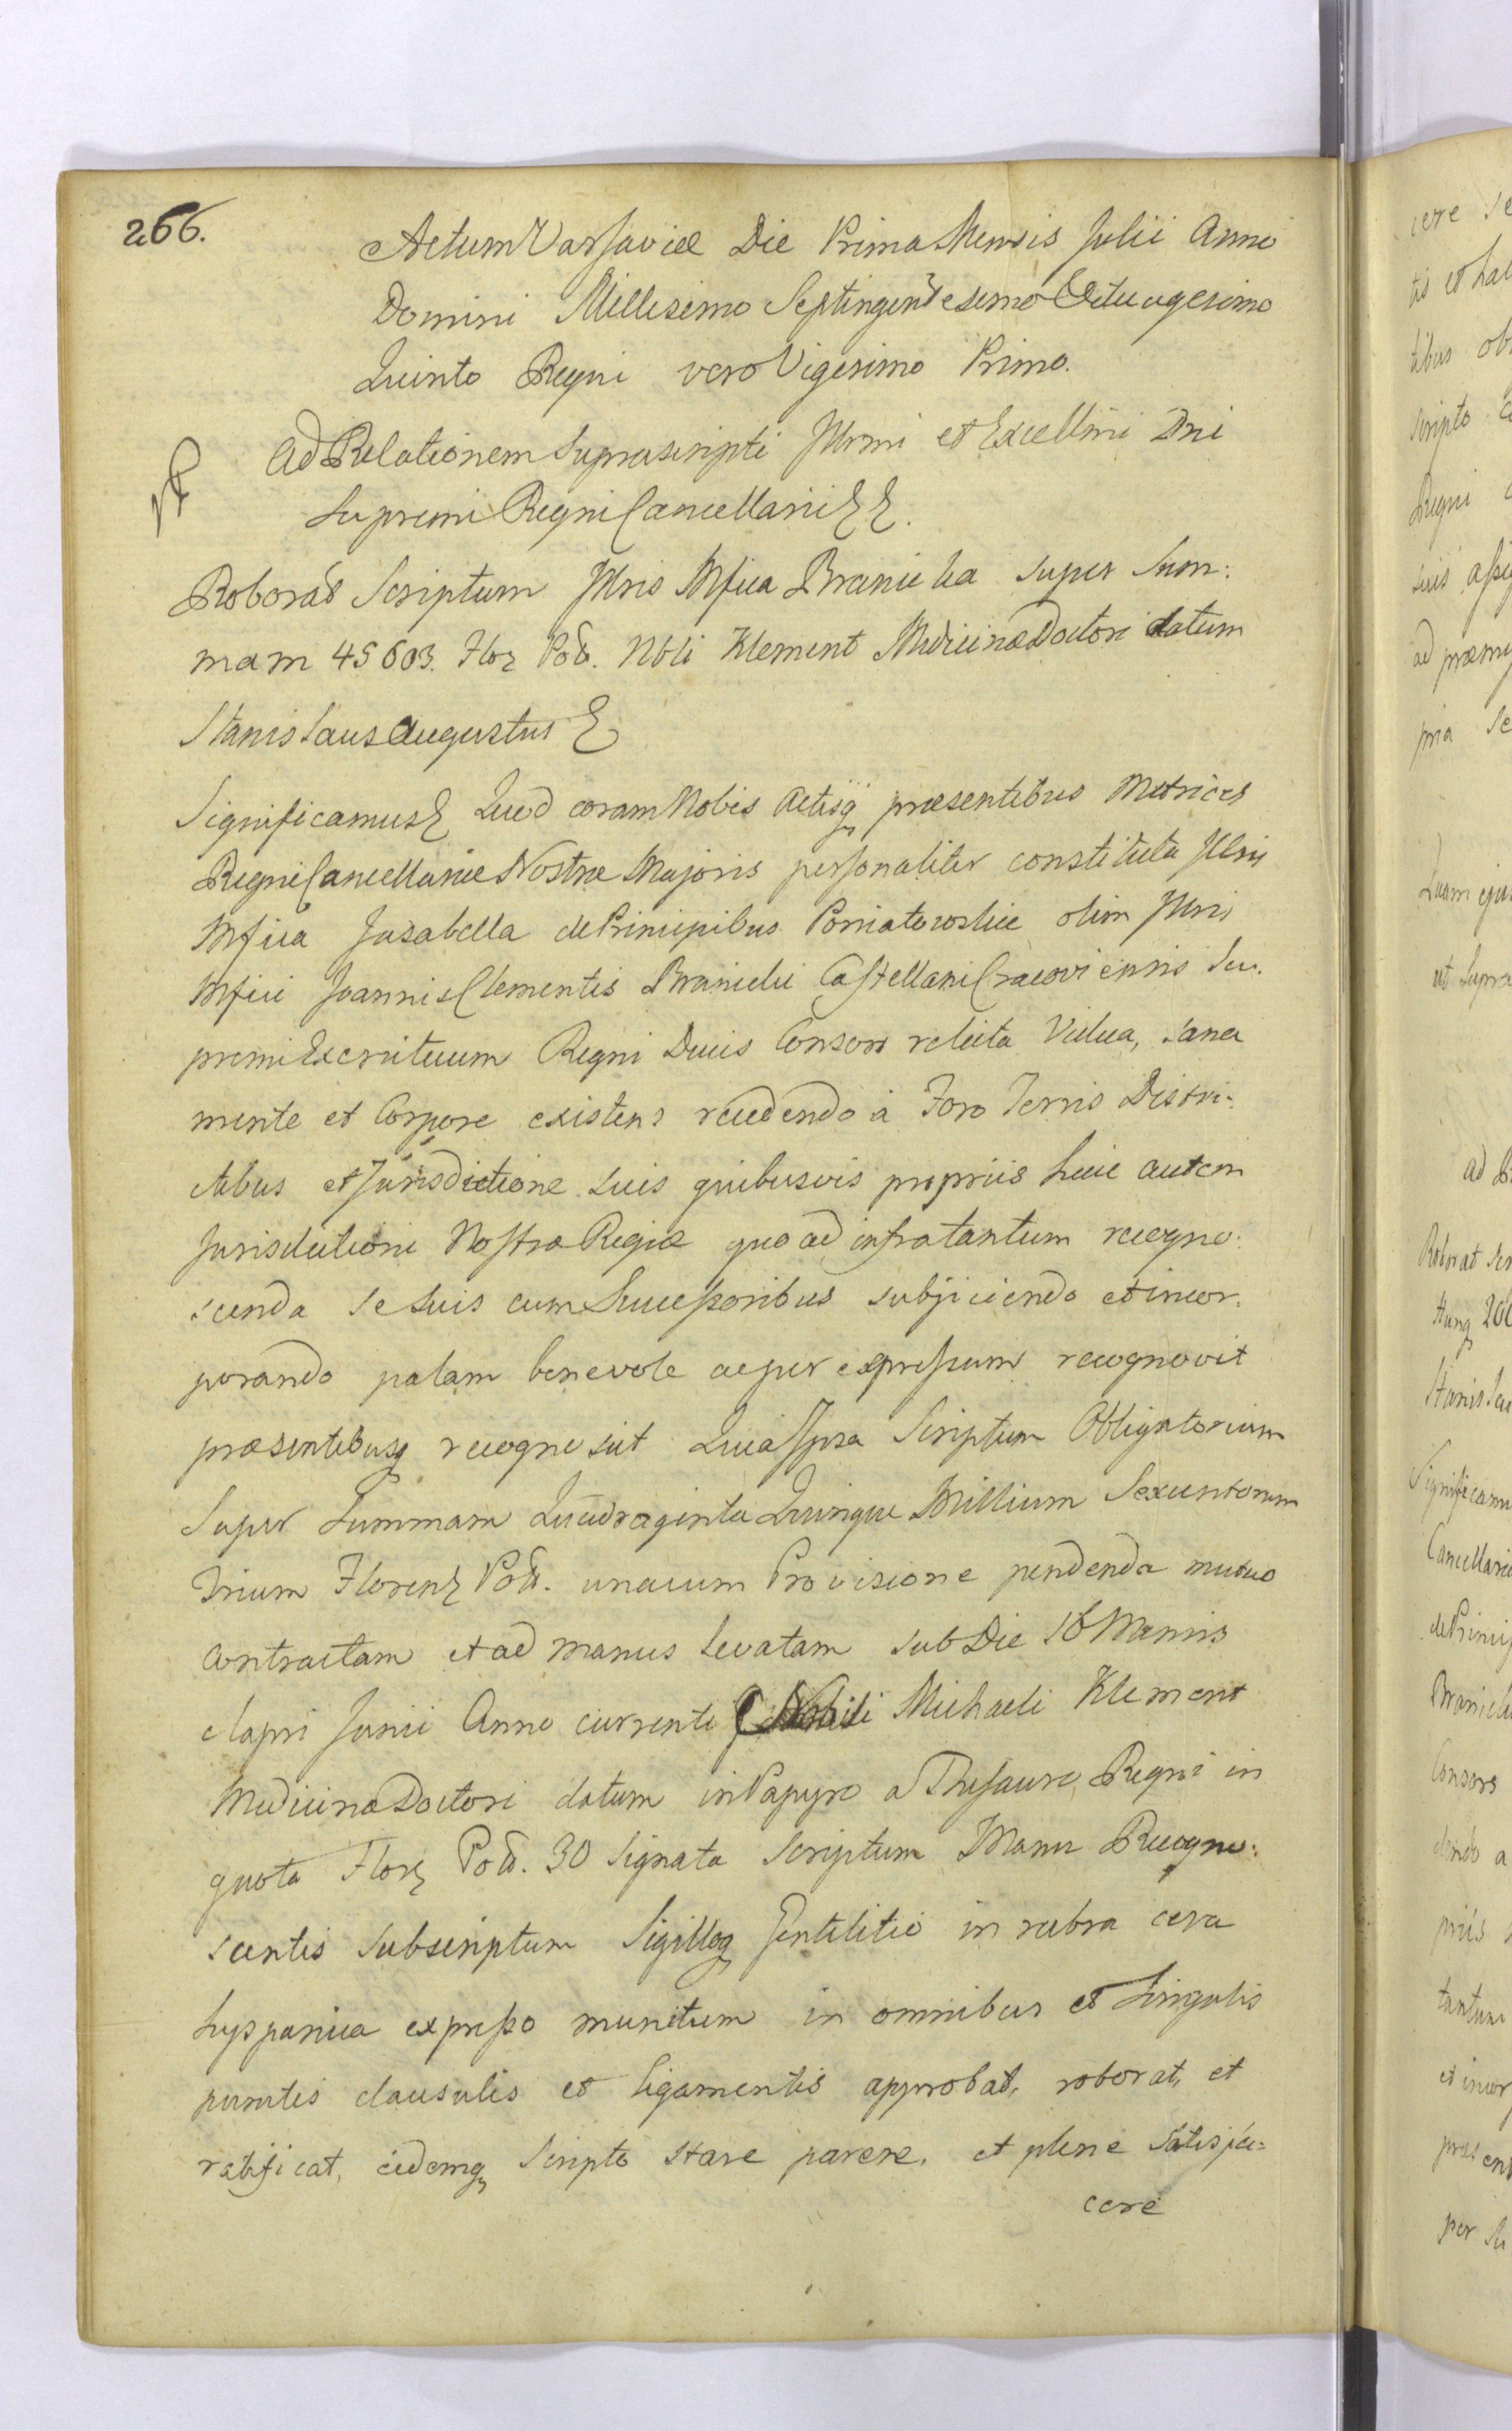 266.
Actum Varsaviæ Die Prima Mensis Julii Anno
Domini Millesimo Septingentesimo Octuagesimo
Quinto Regni vero Vigesimo Primo.
Ad Relationem Suprascripti Jllrmi et Excellmi Dni
Supremi Regni Cancellarii
Roborat Scriptum Jllris Mfica Branicka super Sum:
mam 45603. Flor Pol. Nbli Klement Medicinæ Doctori datum
Stanislaus Augustus
Significamus Quod coram Nobis Actisq præsentibus Metrices
Regni Cancellariæ Nostræ Majoris personaliter constituta Jllris
Mfica Jzabella de Principibus Poniatowskie olim Jllris
Mfici Joannis Clementis Branicki Castellani Cracoviensis Su.
premi Exercituum Regni Ducis Consors relicta Vidua, sana
mente et Corpore existens recedendo à Foro Terris Distri:
ctibus et Jurisdictione suis quibusvis propriis huic autem
Jurisdictioni Nostræ Regiæ quo ad infra tantum recogno:
scenda se suis cum Successoribus subjiciendo et incor.
porando palam benevole ac per expressum recognovit
præsentibusq recognoscit Quia Ipsa Scriptum Obligatorium
Super Summam Quadraginta Quinque Millium Sexcentorum
Trium Floren Pol. unacum Provisione pendenda mutuo
contractam et ad manus levatam sub Die 16 Mensis
elapsi Junii Anno currenti Nobili Michaeli Klement
Medicinæ Doctori datum in Papyro a Thesauro Regni in
quota Flor Pol. 30 signata scriptum Manu Recogno:
scentis subscriptum Sigilloq Gentilitio in rubra cera
hyspanica expresso munitum in omnibus et singulis
punctis clausulis et ligamentis approbat, roborat, et
ratificat, eidemq Scripto stare parere, et plene satisfa:
cere